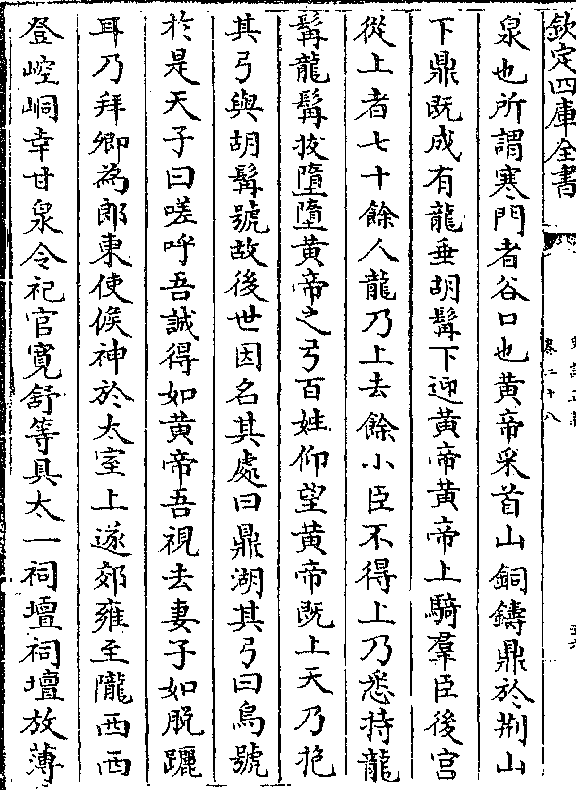 欽定四庫全書
卷二十八
泉也所謂寒門者谷口也黄帝采首山銅鑄鼎於荆山
下鼎既成有龍垂胡髯下迎黄帝黄帝上騎羣臣後宫
從上者七十餘人龍乃上去餘小臣不得上乃悉持龍
髯龍髯拔墮墮黄帝之弓百姓仰望黄帝既上天乃抱
其弓與胡髯號故後世因名其處曰鼎湖其弓曰烏號
於是天子曰嗟呼吾誠得如黄帝吾視去妻子如脱躧
耳乃拜卿為郎東使候神於太室上遂郊雍至隴西西
登崆峒幸甘泉令祀官寛舒等具太一祠壇祠壇放薄